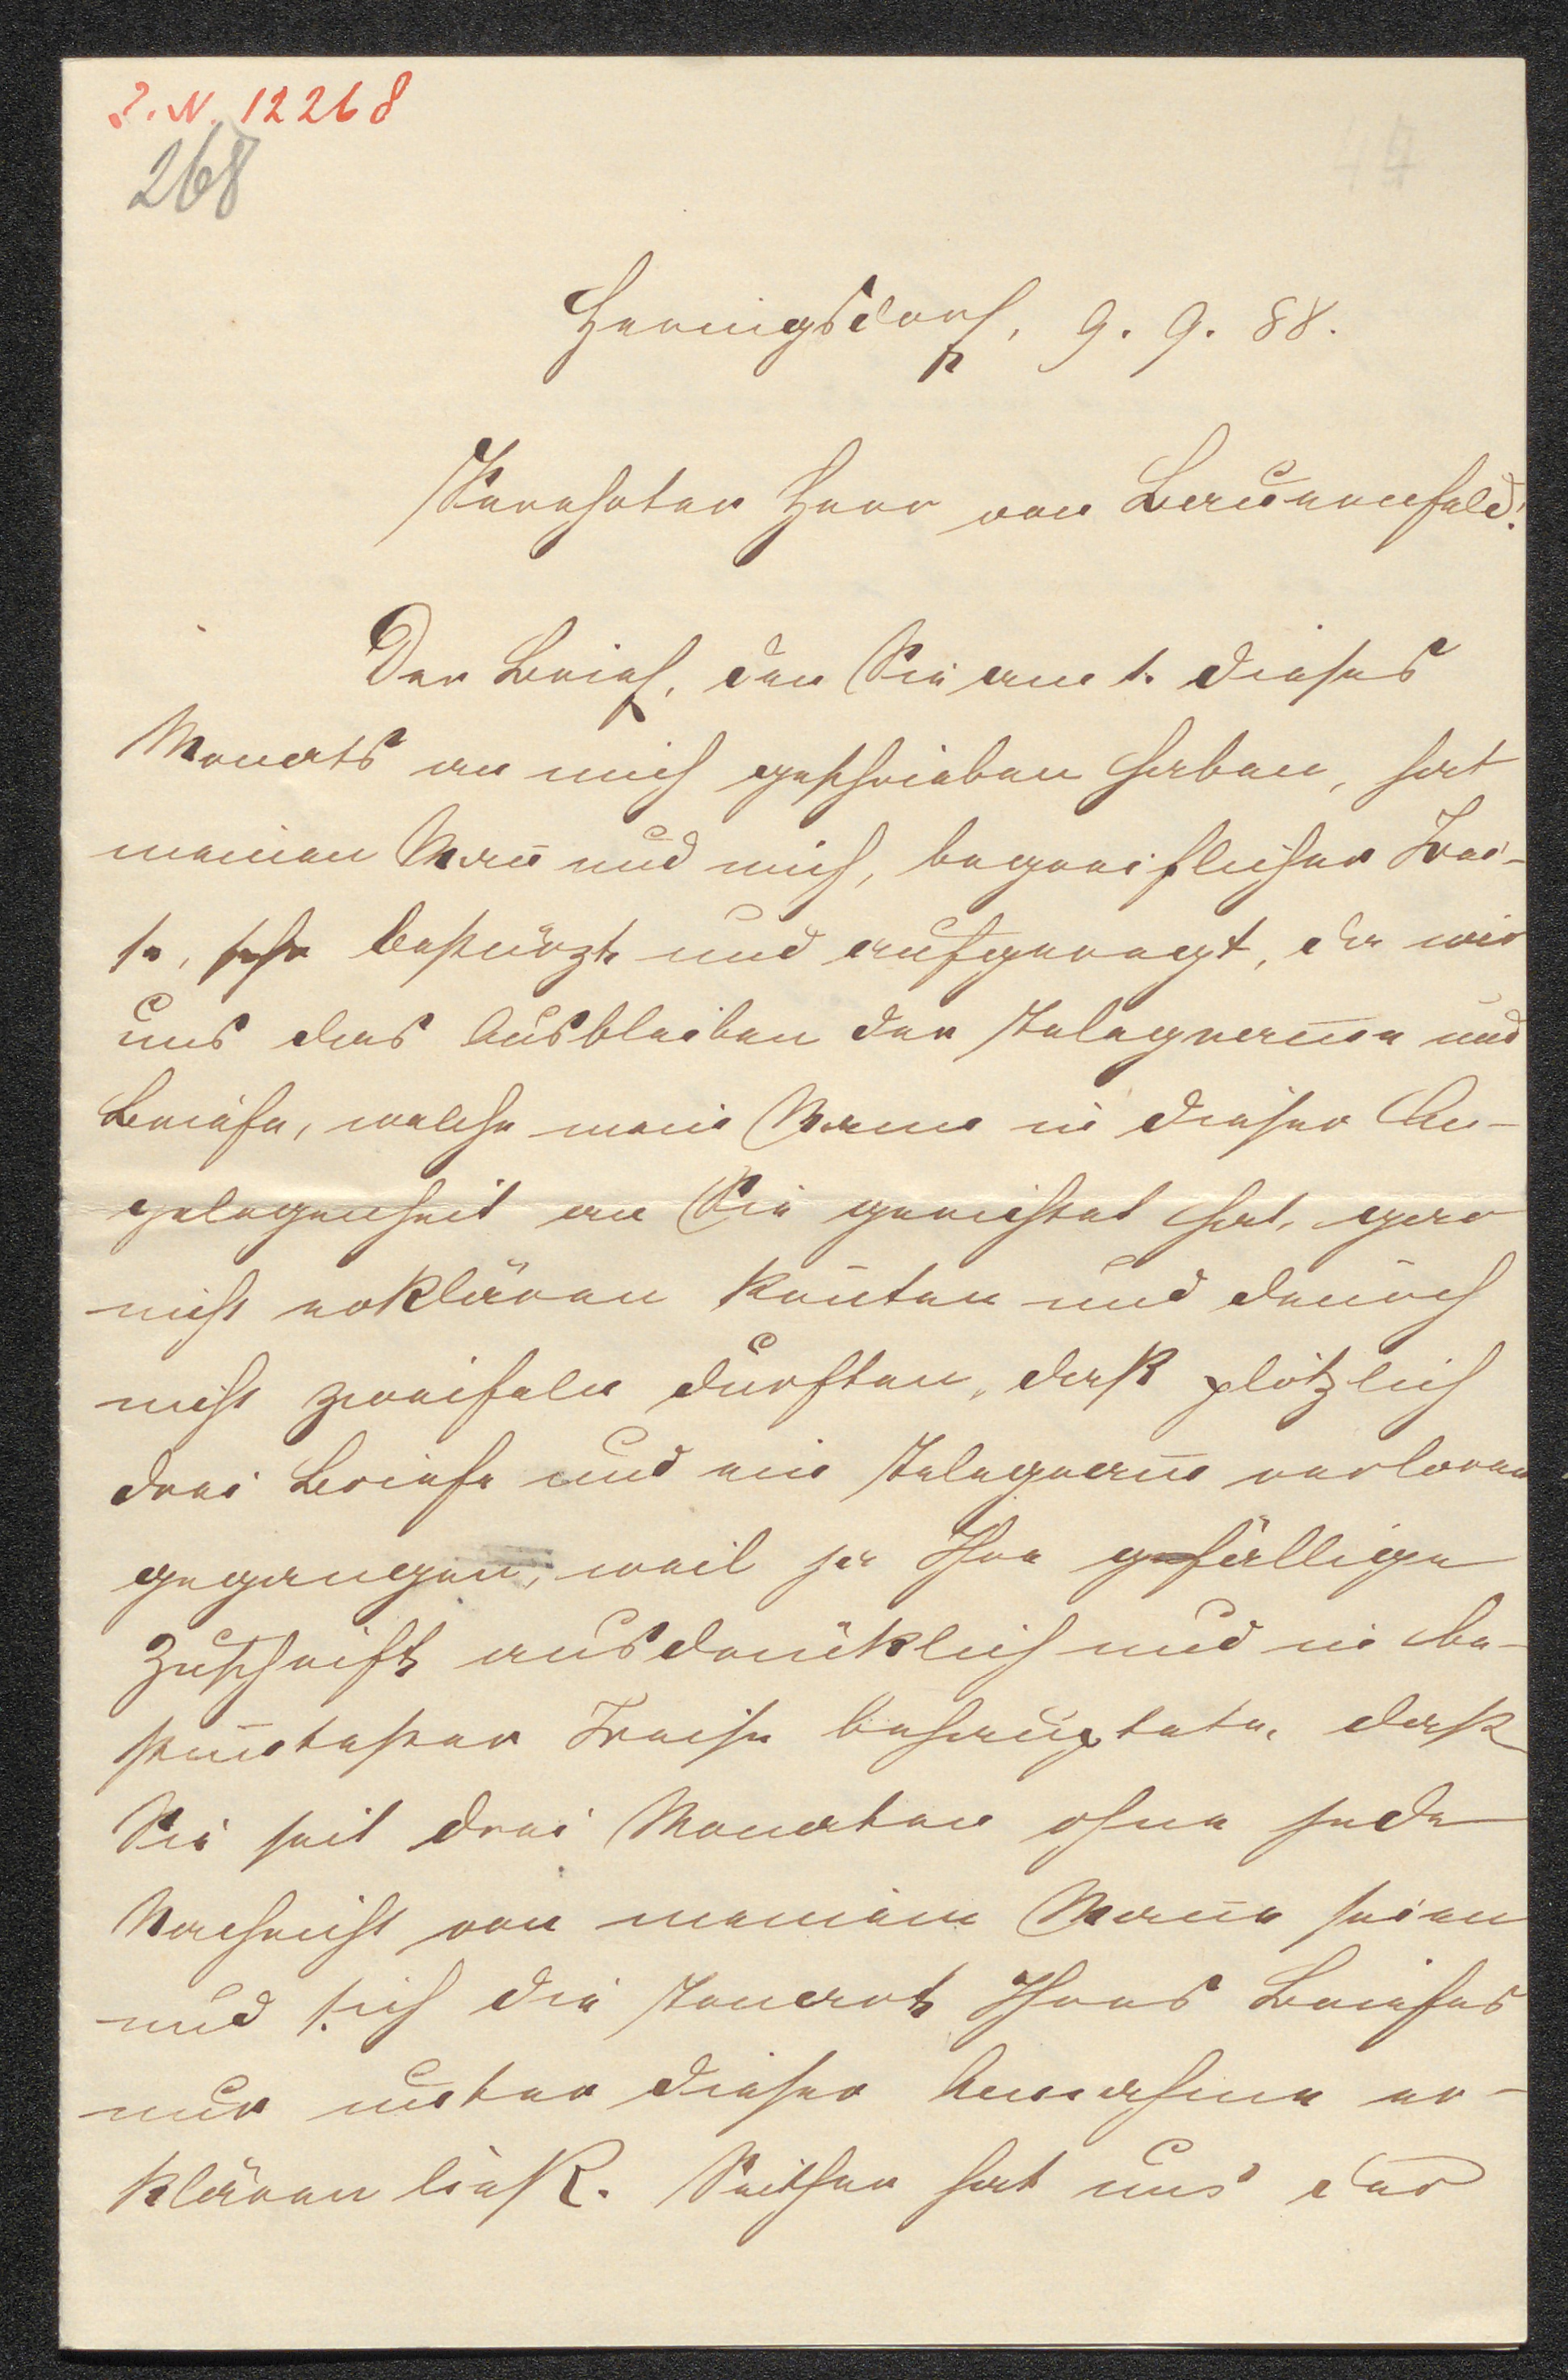 I. N. 12268
268
Hennigsdorf, 9. 9. 88.
Verehrter Herr von Bauernfeld!
Der Brief, den Sie am 1. dieses
Monats an mich geschrieben haben, hat
meinen Mañ und mich, begreiflicher Wei-
se, sehr bestürzt und aufgeregt, da wir
uns das Ausbleiben der Telegram̄e und
Briefe, welche mein Mann in dieser An-
gelegenheit an Sie gerichtet hat, gar
nicht erklären koñten und deñoch
nicht zweifeln durften, daß plötzlich
drei Briefe und ein Telegram̄ verloren
gegangen, weil ja Ihre gefällige
Zuschrift ausdrücklich und in be-
stim̄tester Weise behauptete, daß
Sie seit drei Monaten ohne jede
Nachricht von meinem Mañe seien
und sich die Tonart Ihres Briefes
nur unter dieser Annahme er-
klären ließ. Seither hat uns der